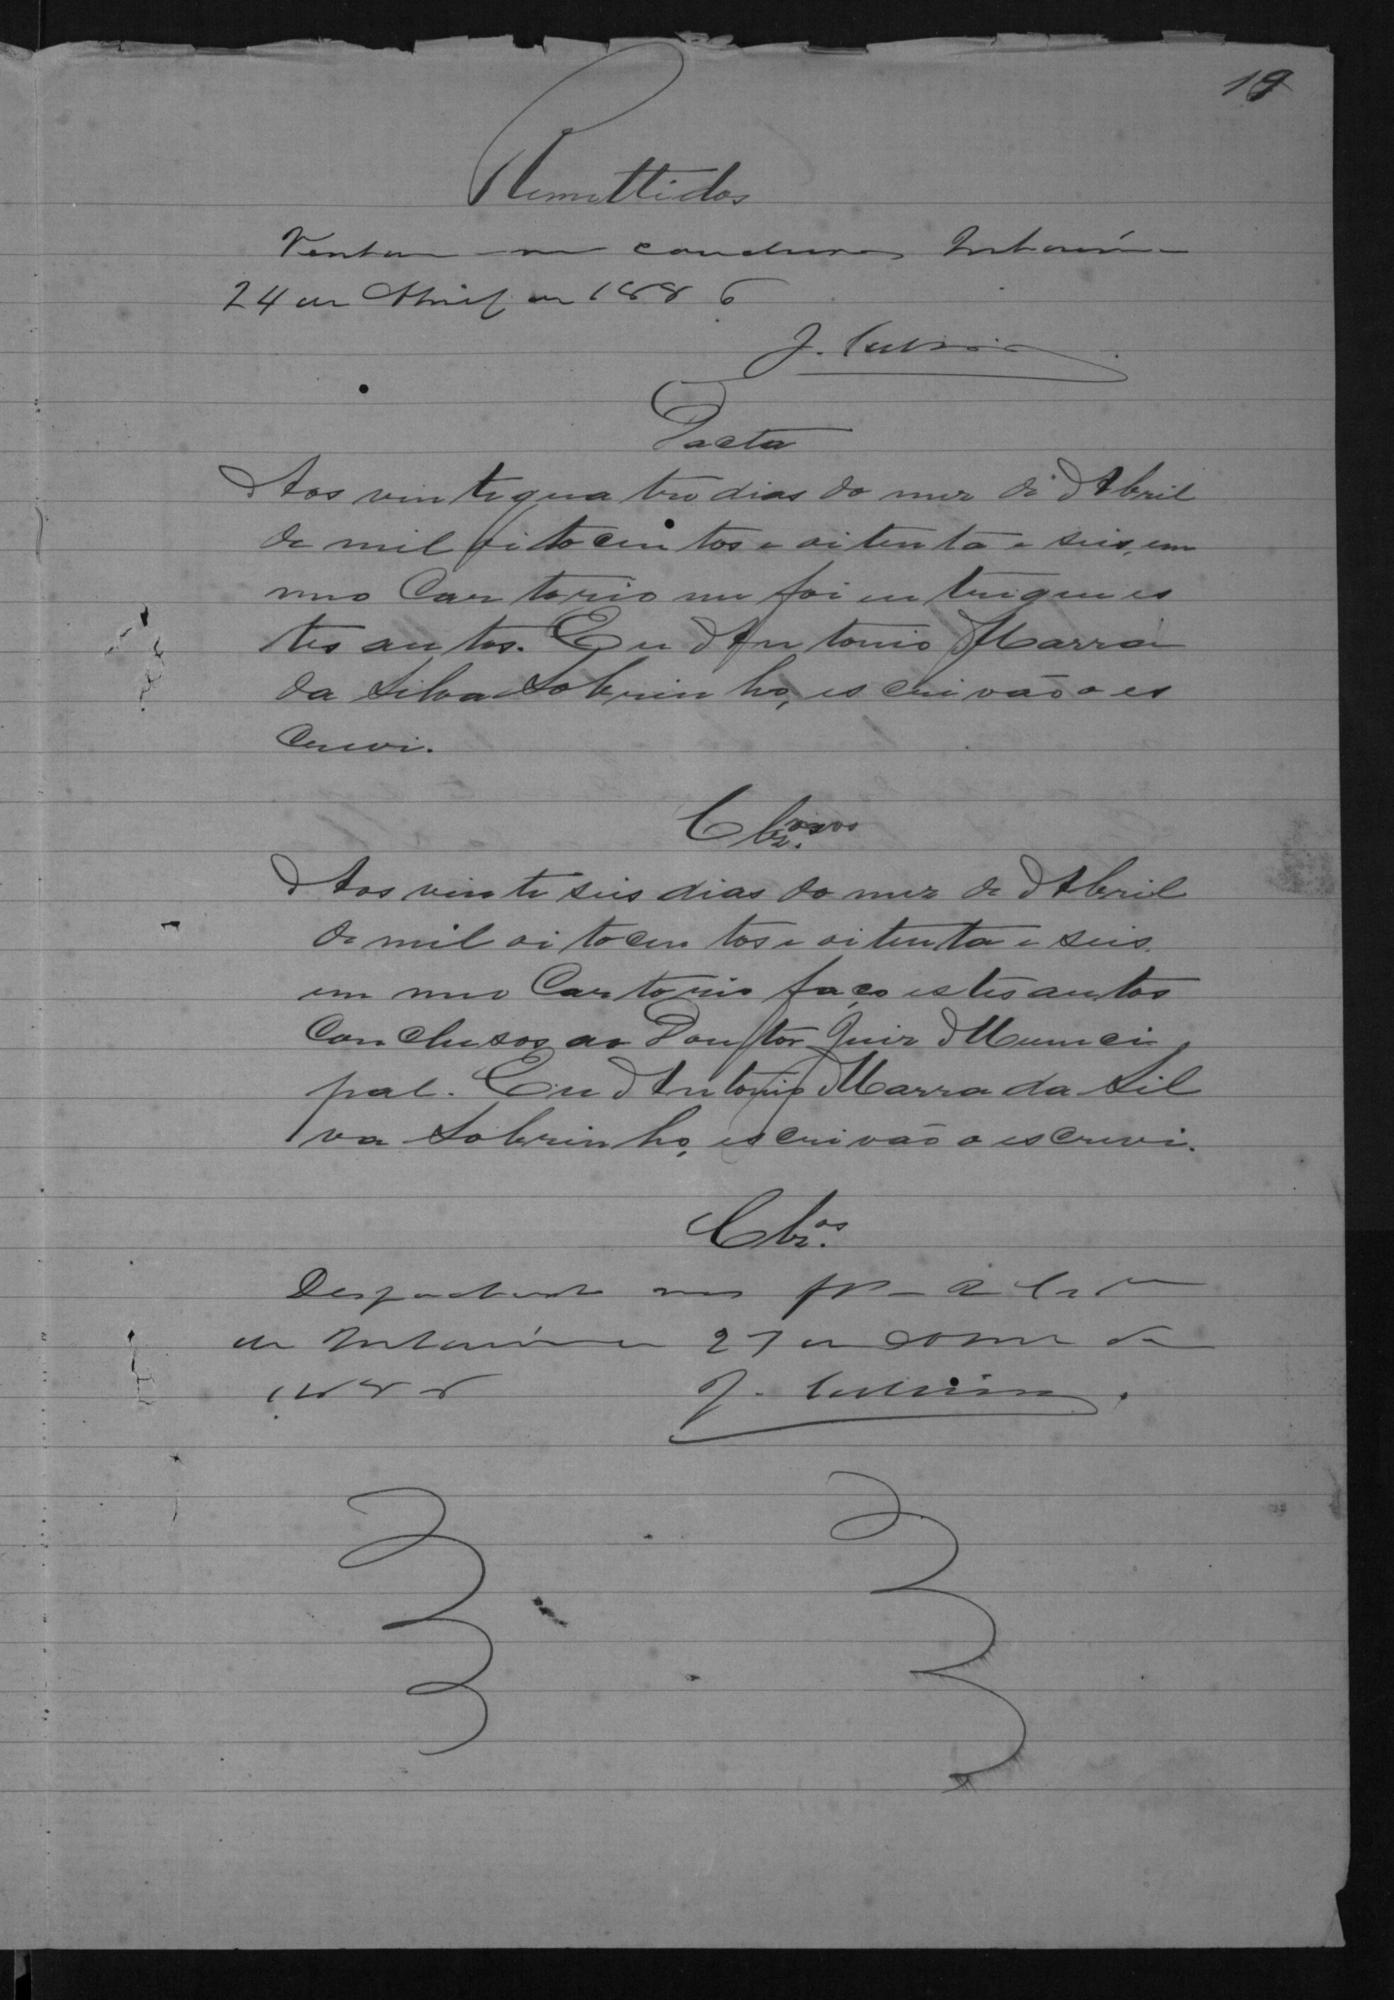 19
Remettidos
Venham me conclusos
24 de Abril de 1886
J.
Dacta
Aos vinte quatro dias do mez de Abril
de mil oitocentos e oitenta e seis, em
meo Cartorio me foi entregue es
tes autos. Eu Antonio Marra
da Silva Sobrinho, escrivão o es
crevi.
Clzos
Aos vinte seis dias do mez de Abril
de mil oitocentos e oitenta e seis.
em meo Cartorio faço estes autos
Conclusos ao Doutor Juiz Munici
pal. Eu Antonio Marra da Sil
va Sobrinho, escrivão o escrevi.
Clzos
Despachado
27 de
1886 J.